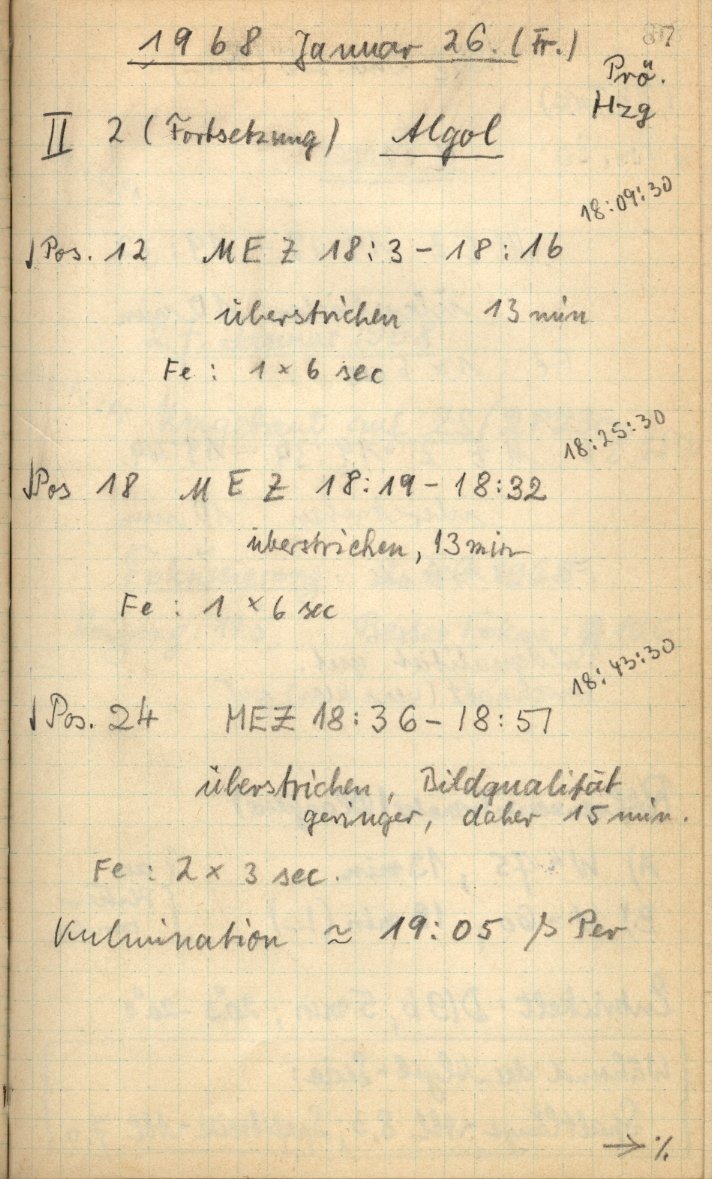 1968 Januar 26. (Fr.)
Prö.
Hzg
II 2 (Fortsetzung) Algol
18:09:30
√Pos. 12 MEZ 18:3 - 18:16
überstrichen 13 min
Fe: 1 × 6 sec
18:25:30
√Pos 18 MEZ 18:19 - 18:32
überstrichen, 13 min
Fe: 1 × 6 sec
18:43:30
√Pos. 24 MEZ 18:36 - 18:51
überstrichen, Bildqualität
geringer, daher 15 min.
Fe: 2 × 3 sec.
Kulmination ≈ 19:05 β Per
→ ·/.